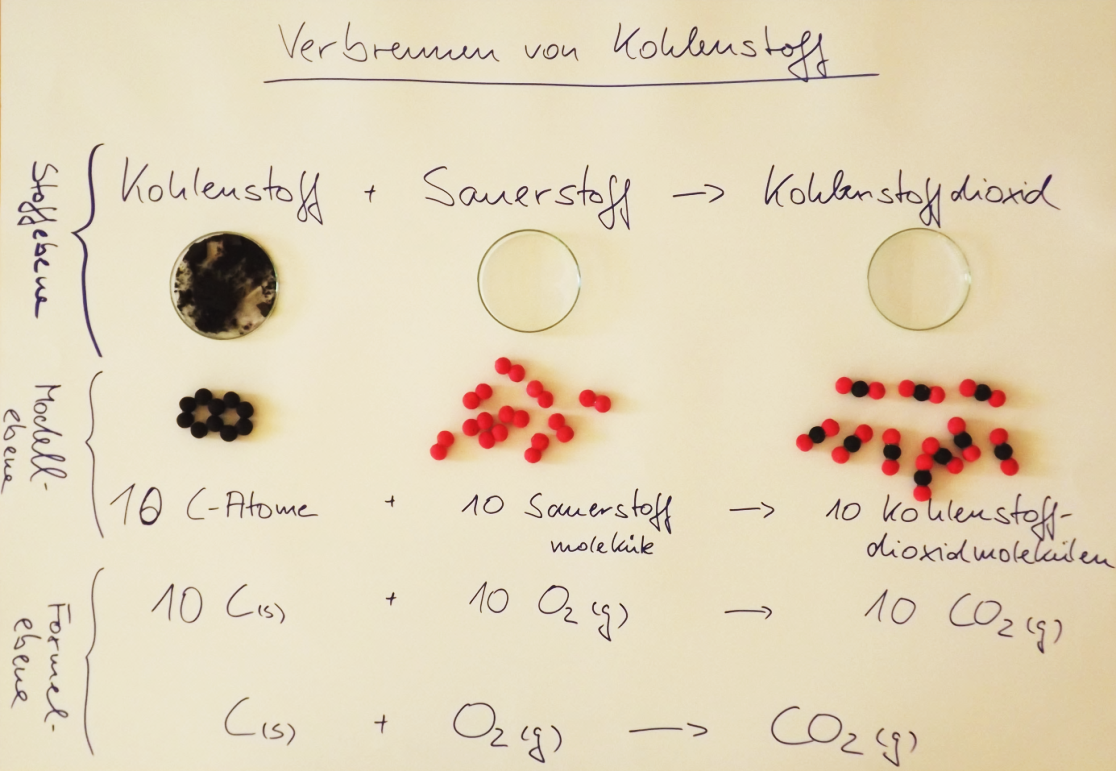 Verbrennen von Kohlenstoff
Stoffebene
Kohlenstoff + Sauerstoff → Kohlenstoffdioxid
Modell-
ebene
10 C-Atome + 10 Sauerstoff → 10 Kohlenstoff-
moleküle dioxidmolekülen
Formel-
ebene
10 C(s) + 10 O₂(g) → 10 CO₂(g)
C(s) + O₂(g) → CO₂(g)